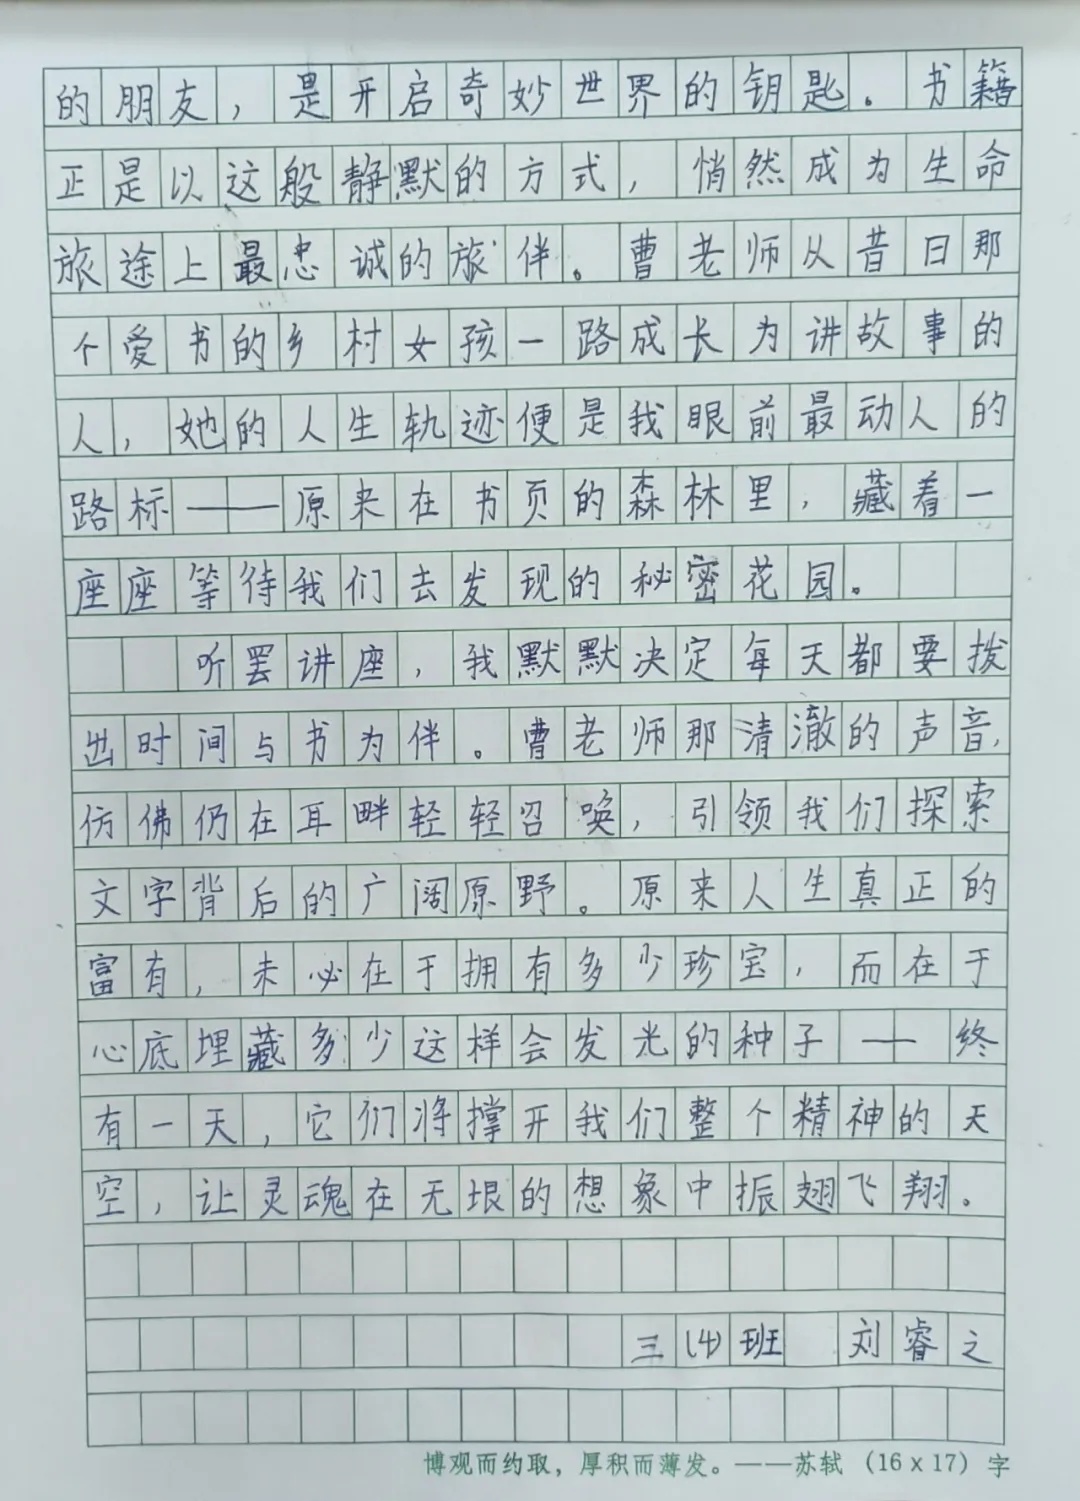 的朋友，是开启奇妙世界的钥匙。书籍
正是以这般静默的方式，悄然成为生命
旅途上最忠诚的旅伴。曹老师从昔日那
个爱书的乡村女孩一路成长为讲故事的
人，她的人生轨迹便是我眼前最动人的
路标——原来在书页的森林里，藏着一
座座等待我们去发现的秘密花园。
听罢讲座，我默默决定每天都要拨
出时间与书为伴。曹老师那清澈的声音，
仿佛仍在耳畔轻轻召唤，引领我们探索
文字背后的广阔原野。原来人生真正的
富有，未必在于拥有多少珍宝，而在于
心底埋藏多少这样会发光的种子——终
有一天，它们将撑开我们整个精神的天
空，让灵魂在无垠的想象中振翅飞翔。
三(4)班 刘睿之
博观而约取，厚积而薄发。——苏轼（16×17）字